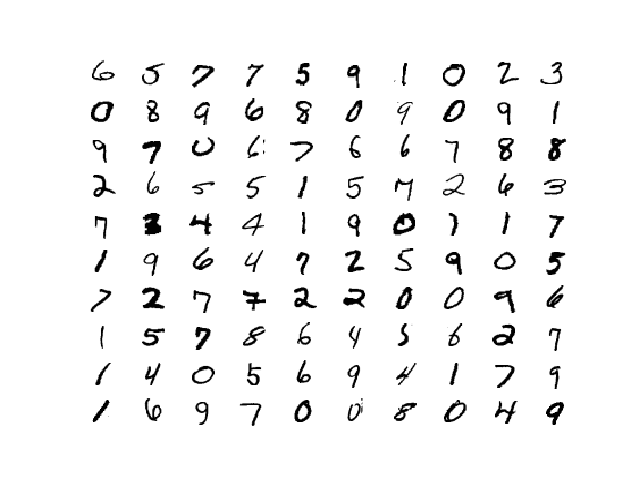 6 5 7 7 5 9 1 0 2 3
0 8 9 6 8 0 9 0 9 1
9 7 0 6 7 6 6 7 8 8
2 6 5 5 1 5 7 2 6 3
7 3 4 4 1 9 0 7 1 7
1 9 6 4 7 2 5 9 0 5
7 2 7 7 2 2 0 0 9 6
1 5 7 8 6 4 5 6 2 7
1 4 0 5 6 9 4 1 7 9
1 6 9 7 0 0 8 0 4 9